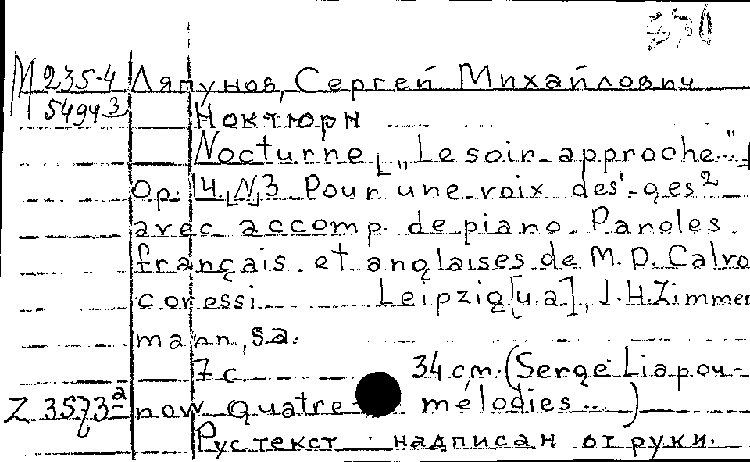 М 235-4 Ляпунов, Сергей Михайлович
5494 3 Ноктюрн
Nocturne „Le soir approche..."
Op. 14, N 3 Pour une voix des'-ges²
avec accomp. de piano. Paroles
français. et anglaises de M. D. Calvo
coressi Leipzig [u.a], J.H.Zimmer
mann, s.a.
7 с 34 cm. (Serge Liapou-
Z 3573-2 now quatre mélodies...)
Рус текст надписан от руки.